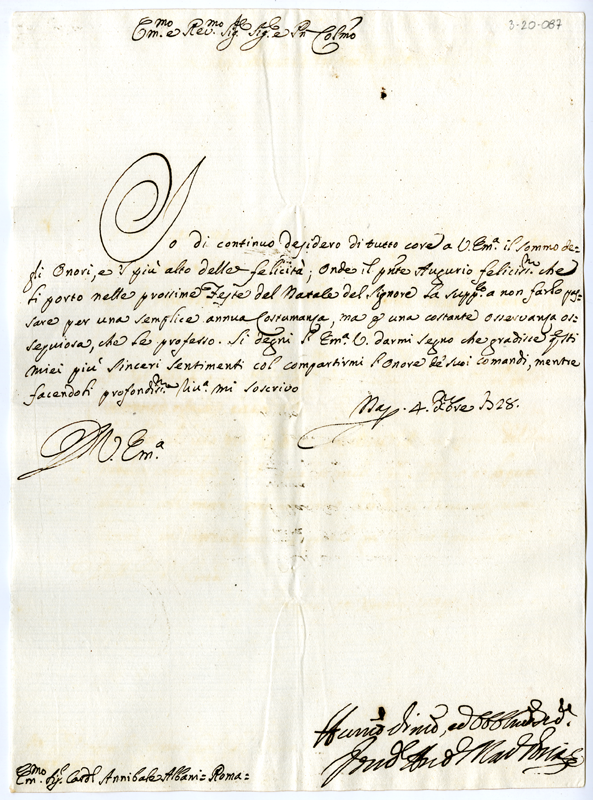 3-20-087
Em.mo e Rev.mo Sig.r Sig.re e Pn Colmo
Io di continuo desidero di tutto core a V. Em.a il sommo de-
gli Onori, e 'l più alto delle felicità; Onde il pnte Augurio feliciss.mo che
ti porto nelle prossime Feste del Natale del Signore La supp.co a non farlo pas-
sare per una semplice annua Costumanza, ma p una costante Osservanza os-
sequiosa, che Le professo. Si degni l'Em.a V. darmi segno che gradisce q.sti
miei più sinceri sentimenti col compartirmi l'Onore de' suoi comandi, mentre
facendoli profondiss.ma Riv.a mi soscrivo
Nap. 4. Xbre 1728.
D V. Em.a
ed
Em.mo Sig.r Card.l Annibale Albani = Roma =